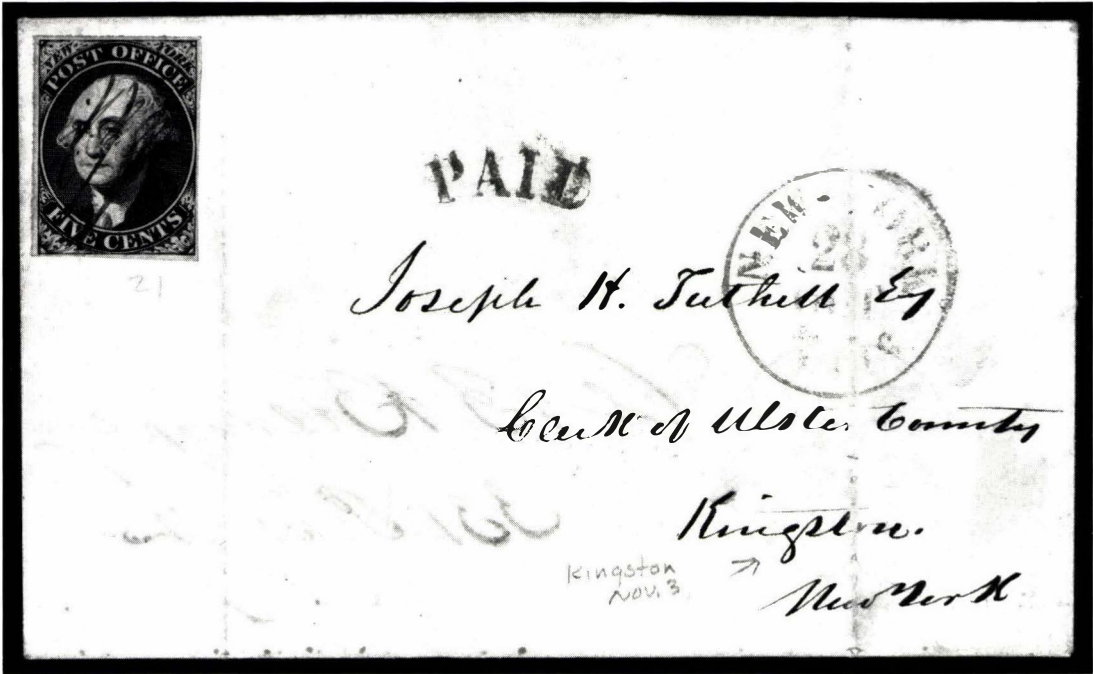 NEW YORK
POST OFFICE
FIVE CENTS
21
PAID
NEW YORK
28
Joseph H. Tuthill Esq
Clerk of Ulster County
Kingston.
New York
Kingston
NOV. 3